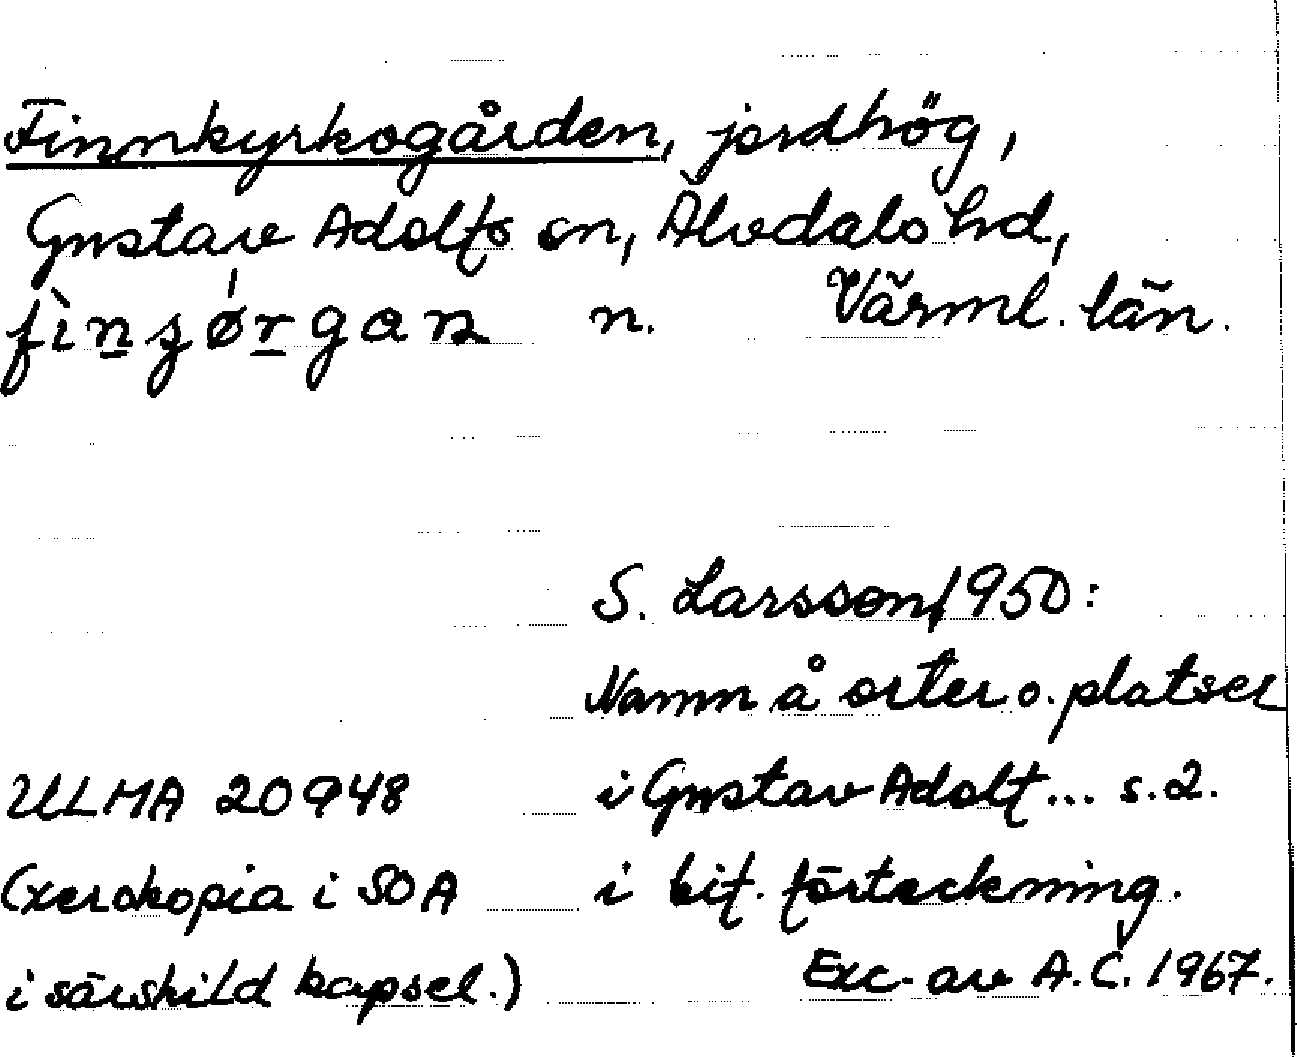 Finnkyrkogården, jordhög,
Gustav Adolfs sn, Älvdals hd,
n. Värml. län.
S. Larsson, 1950:
Namn å orter o. platser
ULMA 20948 i Gustav Adolf... s.2.
(xerokopia i SOA i bif. förteckning.
i särskild kapsel.) Exc. av A.C. 1967.